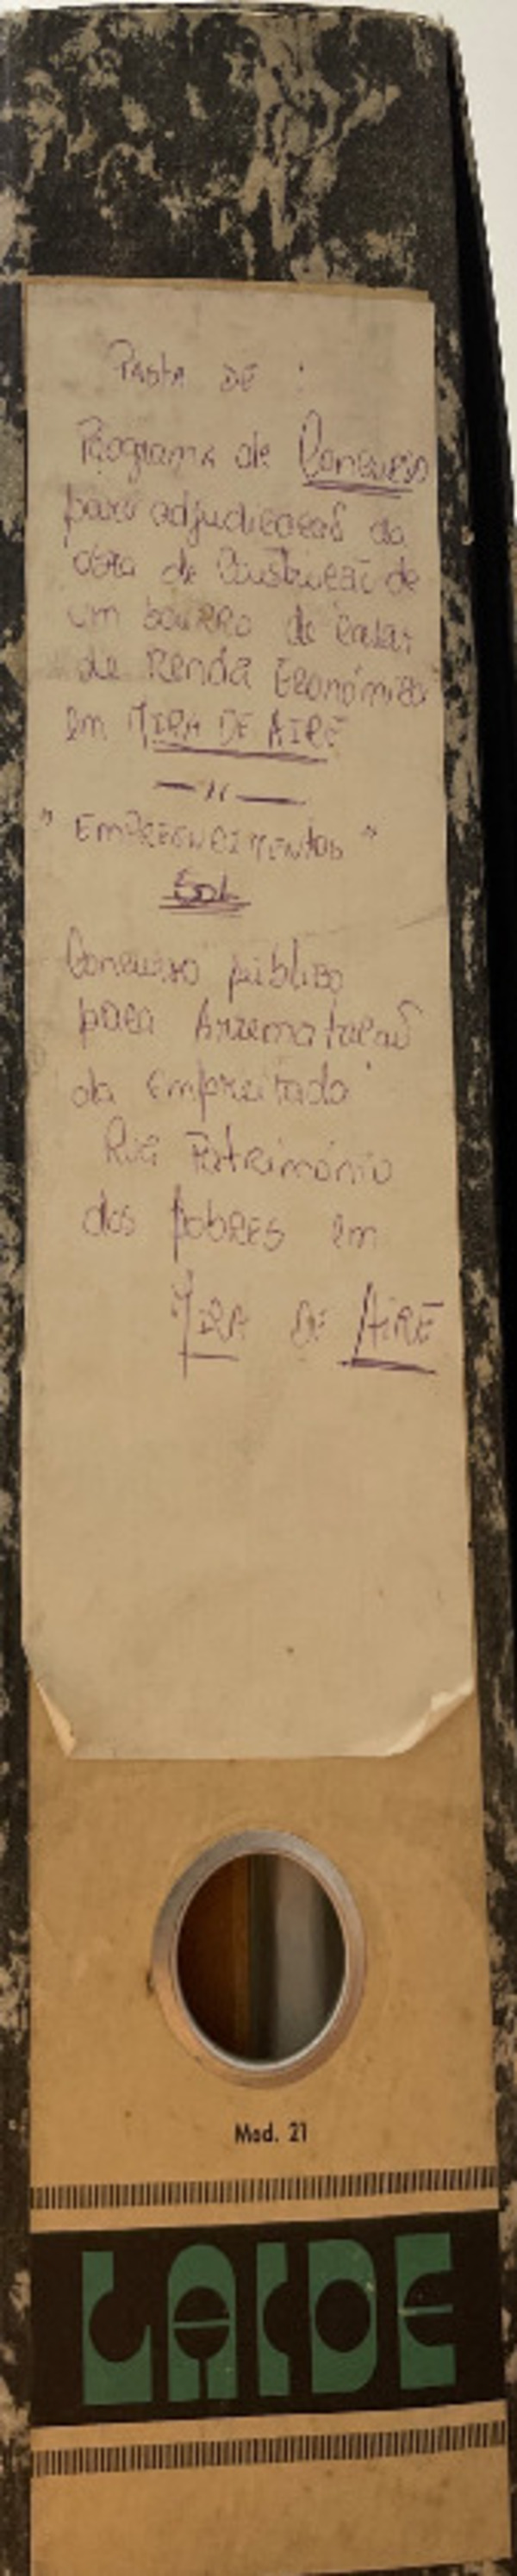 Pasta de :
Programa de Concurso
para adjudicação da
obra de Construção de
um bairro de casas
de Renda Económica
em MIRA DE AIRE
— " —
" EmPREENDIMENTOS "
Sol
Concurso público
para Arrematação
da Empreitada
Rua Património
dos pobres em
MIRA DE AIRE
Mod. 21
LAIDE